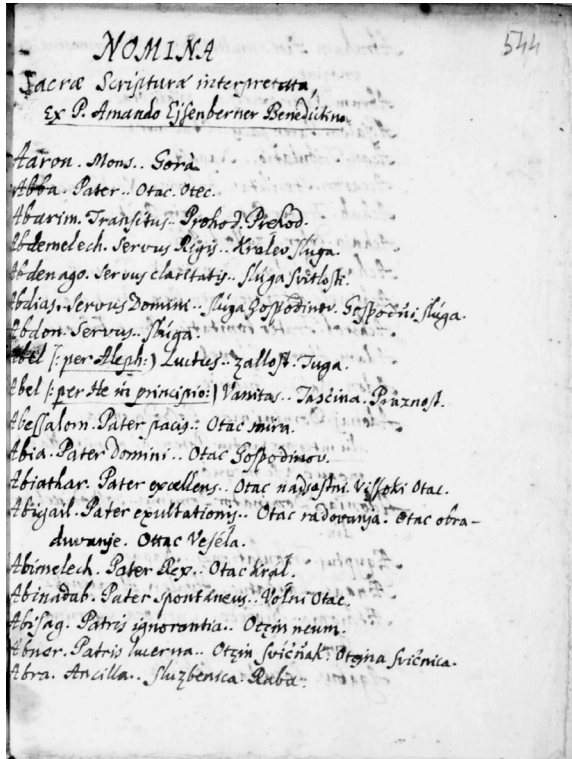 544
NOMINA
Sacræ Scripturæ interpretata,
Ex P. Amando Ejsenberner Benedictino
Aaron. Mons. Gorà
Abba. Pater.. Otac. Otec.
Abarim. Transitus.. Prohod. Prehod.
Abdemelech. Servus Regis.. Kralev sluga.
Abdenago. Servus claritatis.. sluga Svitlosti.
Abdias. Servus Domini.. sluga Gospodinov. Gospočni sluga.
Abdon. Servus.. Sluga.
Abel (: per Aleph:) Luctus.. zallost. Tuga.
Abel (: per He in principio:) Vanitas.. Taščina. Praznost.
Abessalom. Pater pacis.. Otac mira.
Abia. Pater Domini.. Otac Gospodinov.
Abiathar. Pater excellens.. Otac najsastni. Vissoki Otac.
Abigail. Pater exultationis.. Otac radovanja. Otac obra-
duvanje. Otac Veséla.
Abimelech. Pater Rex.. Otac kral.
Abinadab. Pater spontaneus.. Volni Otac.
Abisag. Patris ignorantia.. Otčin neum.
Abner. Patris lucerna.. Otčin svičnak. Otčina svičnica.
Abra. Ancilla.. Sluzbenica. Raba.